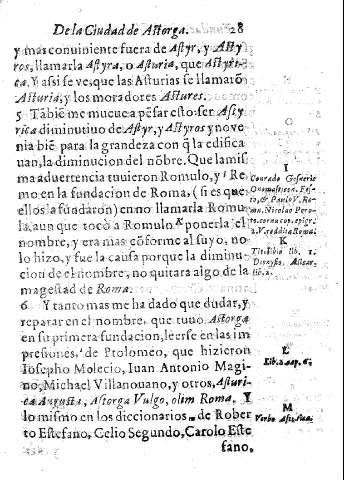 De la Ciudad de Astorga. 28
y mas conuiniente fuera de Astyr, y Asty
ros, llamarla Astyra, o Asturia, que Astyri-
ca. Y assi se ve, que las Asturias se llamarõ
Asturia, y los moradores Astures.
5 Tãbiẽ me mueue a pẽsar esto: ser Asty
rica diminutiuo de Astyr, y Astyros y no ve
nia biẽ para la grandeza con q̃ la edifica
uan, la diminucion del nõbre. Que la mis
ma aduertencia tuuieron Romulo, y Re
mo en la fundacion de Roma, (si es que
ellos la fundarõ) en no llamarla Romu
la, aun que tocò a Romulo el ponerla el
nombre, y era mas cõforme al suyo, no
lo hizo, y fue la causa porque la diminu-
cion de el nombre, no quitara algo de la
magestad de Roma.
6 Y tanto mas me ha dado que dudar, y
reparar en el nombre, que tuuo Astorga
en su primera fundacion, leerse en las im
presiones, de Ptolomeo, que hizieron
Iosepho Molecio, Iuan Antonio Magi-
no, Michael Villanouano, y otros, Asturi-
ca Augusta, Astorga Vulgo, olim Roma. Y
lo mismo en los diccionarios de Rober
to Estefano, Celio Segundo, Carolo Este
fano,
I
Conrado Gesnerio
Onomasticon. Fes-
to, & Paulo V. Ro-
ma. Nicolao Pero-
to, cornucop. epigr.
2. V. reddita Roma.
K
Tit. Libio lib. 1.
Dionys. Alicar.
lib. 2.
L
Lib. 2. cap. 6.
M
Verbo Asturica.